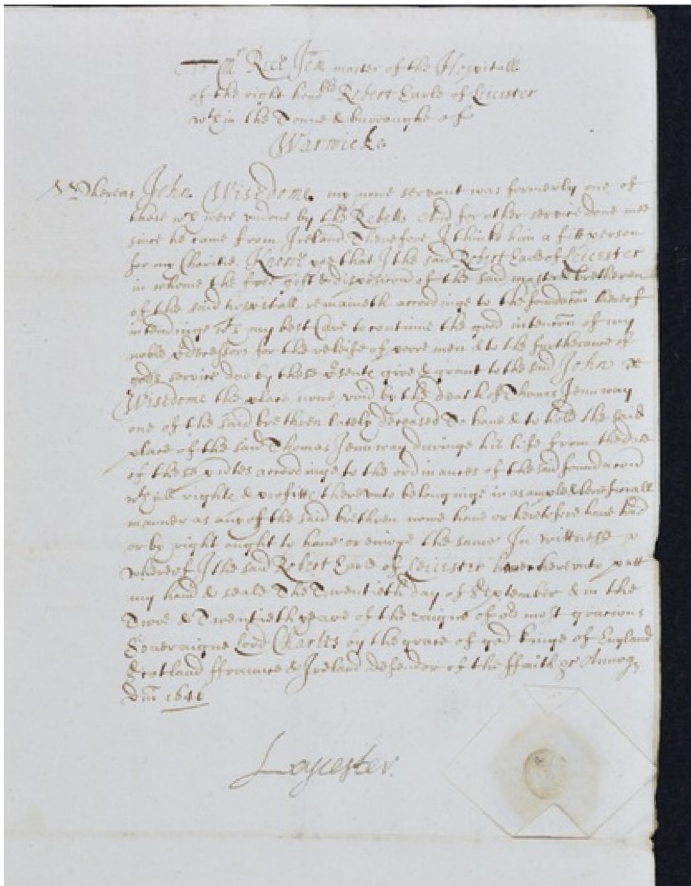 To Mr Rice Jem master of the Hospitall
of the right honble Robert Earle of Leicester
wthin the Towne & burroughe of
Warwicke
Whereas John Wisedome my nowe servant was formerly one of
those wch were undone by the Rebells And for other service done mee
since he came from Ireland Therefore I thinke him a fitt person
for my Charitie. Knowe yee that I the said Robert Earle of Leicester
in whome the free gift & disposicon of the said master & brethren
of the said hospitall remaineth accordinge to the fundacon thereof
intendinge my best Care to continue the good intencon of my
noble pdecessors for the releife of poore men & to the furtherance of
gods service doe by these psents give & grant to the said John
Wisedome the place nowe void by the death of Thomas Jenneway
one of the said brethren lately deceased To have & to hold the said
place of the said Thomas Jenneway duringe his life from the date
of these accordinge to the ordinances of the said fundacon
wth all rights & profitts thereunto belonginge in as ample & beneficiall
manner as any of the said brethren nowe have or heretofore have had
or by right ought to have or enioye the same In wittness
whereof I the said Robert Earle of Leicester have hereunto putt
my hand & seale The Twentieth day of September & in the
Twoe & Twentieth yeare of the raigne of our most gracious
Soveraigne Lord Charles by the grace of god kinge of England
Scotland ffraunce & Ireland defendor of the ffaith &c Annoq
Dm 1646
Leycester.